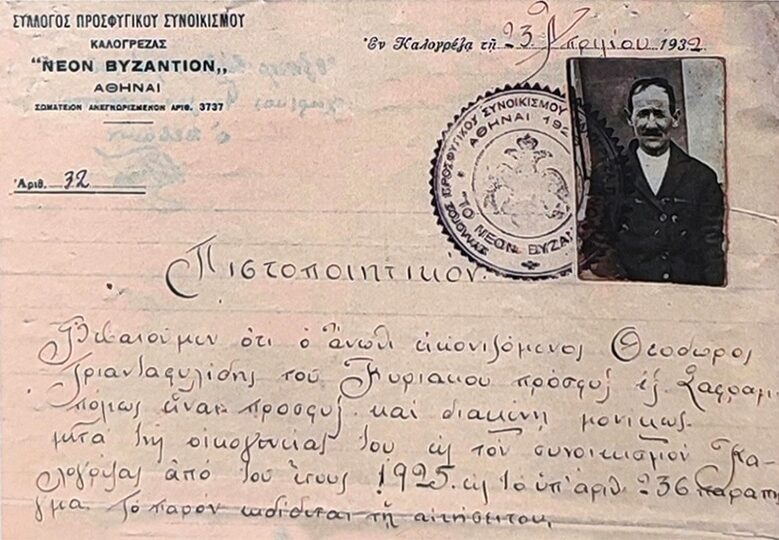 ΣΥΛΛΟΓΟΣ ΠΡΟΣΦΥΓΙΚΟΥ ΣΥΝΟΙΚΙΣΜΟΥ
ΚΑΛΟΓΡΕΖΑΣ
"ΝΕΟΝ ΒΥΖΑΝΤΙΟΝ,,
ΑΘΗΝΑΙ
ΣΩΜΑΤΕΙΟΝ ΑΝΕΓΝΩΡΙΣΜΕΝΟΝ ΑΡΙΘ. 3737
Ἀριθ. 32
Ἐν Καλογρέζᾳ τῇ 23 Ἀπριλίου 1932
ΣΥΛΛΟΓΟΣ ΠΡΟΣΦΥΓΙΚΟΥ ΣΥΝΟΙΚΙΣΜΟΥ
ΑΘΗΝΑΙ 192
"ΤΟ ΝΕΟΝ ΒΥΖΑΝ
Πιστοποιητικόν
Βεβαιούμεν ότι ὁ ἄνωθι εἰκονιζόμενος Θεόδωρος
Τριανδαφυλίδης του Κυριακου πρόσφυξ ἐξ Σαφραμ
πόλεως εἶναι προσφυξ και διακένη μονικως
μετα τῆς οἰκογενείας του εις τον συνοικισμόν Κα-
λογρέζας ἀπό του ἔτους 1925 εις το ὑπ' ἀριθ 236 παραπη
γμα. Το παρον εκδίδεται τῇ αἰτήσει του.